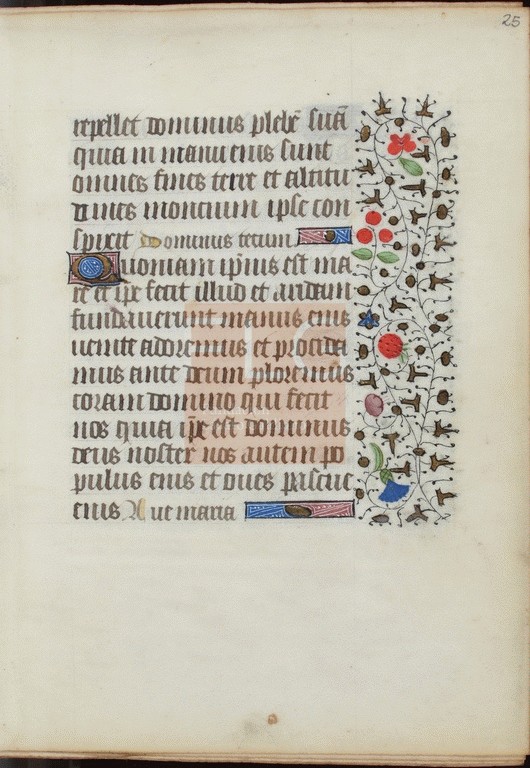 25
repellet dominus plebē suā
quia in manu eius sunt
omnes fines terre et altitu
dines moncium ipse con
spicit Dominus tecum
Quoniam ip̄ius est ma
re et ip̄e fecit illud et aridam
fundauerunt manus eius
uenite adoremus et procida
mus ante deum ploremus
coram domino qui fecit
nos quia ip̄e est dominus
deus noster nos autem po
pulus eius et oues pascue
eius Aue maria